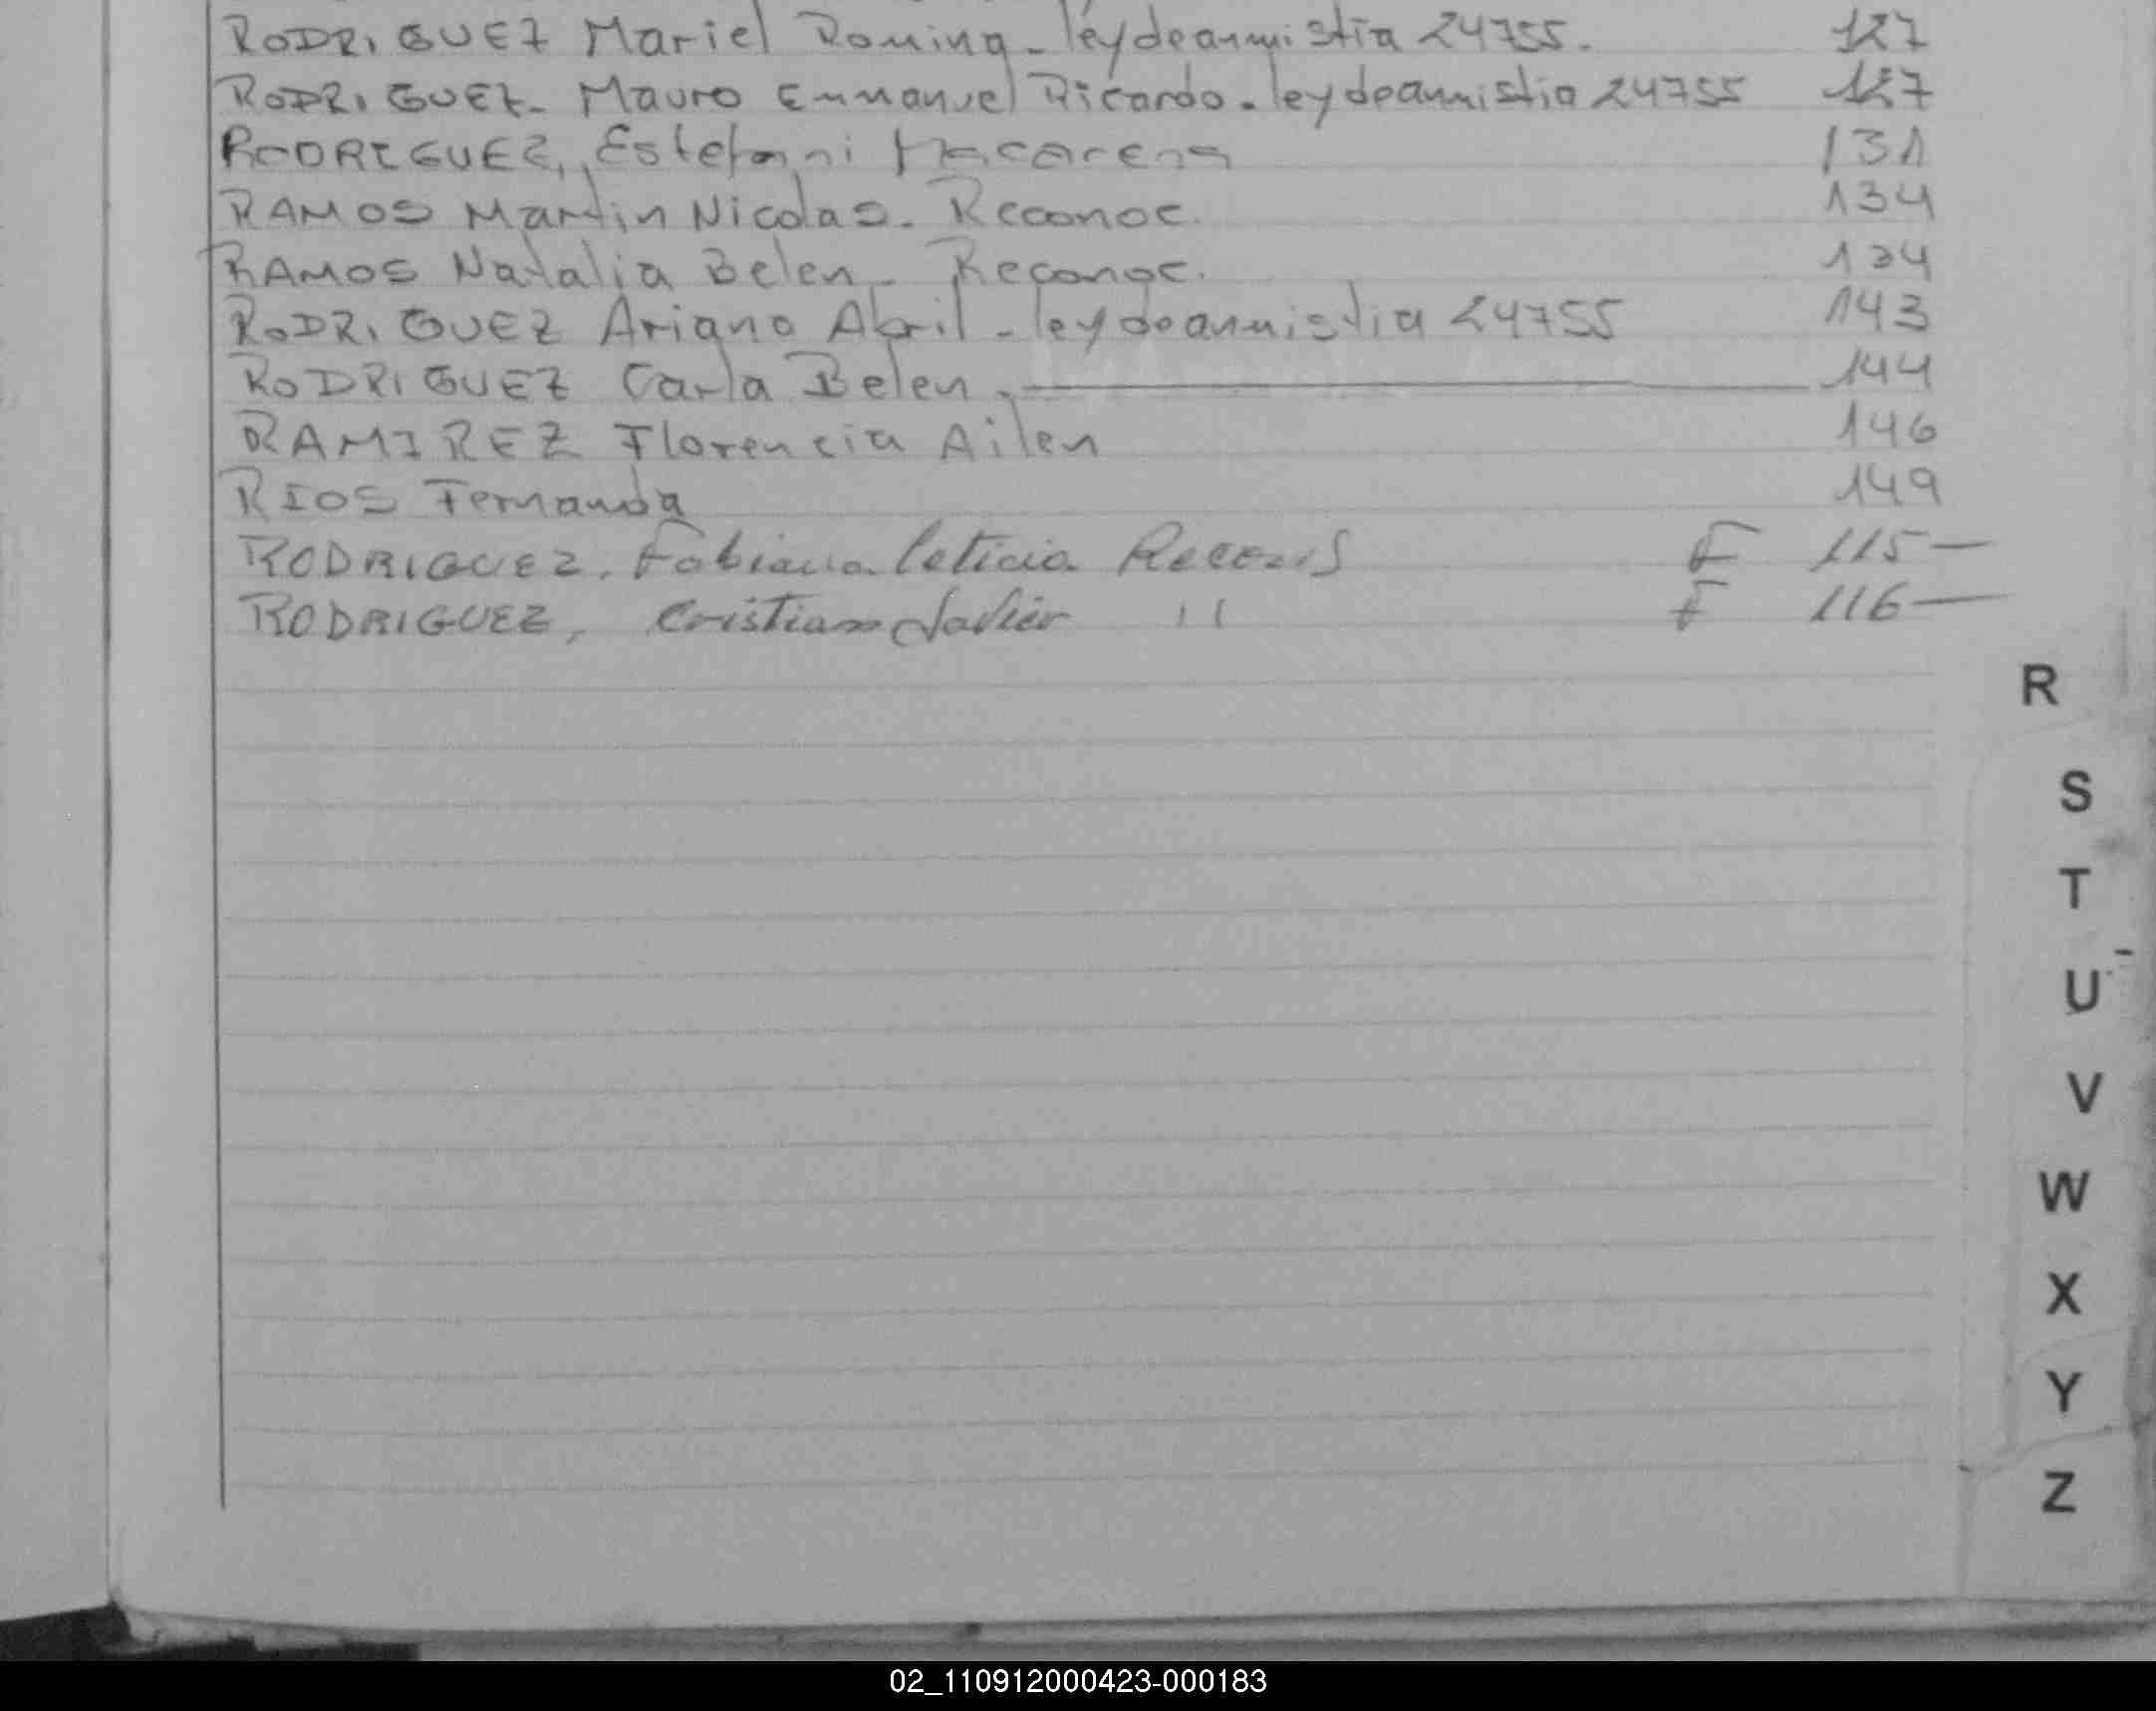 RODRIGUEZ Mariel Romina - ley de amnistia 24755. 127
RODRIGUEZ - Mauro Emmanuel Ricardo - ley de amnistia 24755 127
RODRIGUEZ, Estefani Macarena 131
RAMOS Martin Nicolas - Reconoc. 134
RAMOS Natalia Belen - Reconoc. 134
RODRIGUEZ Ariana Abril - ley de amnistia 24755 143
RODRIGUEZ Carla Belen - 144
RAMIREZ Florencia Ailen 146
RIOS Fernanda 149
RODRIGUEZ, Fabiana Leticia F 115 —
RODRIGUEZ, Cristian Javier " F 116 —
R
S
T
U
V
W
X
Y
Z
02_110912000423-000183